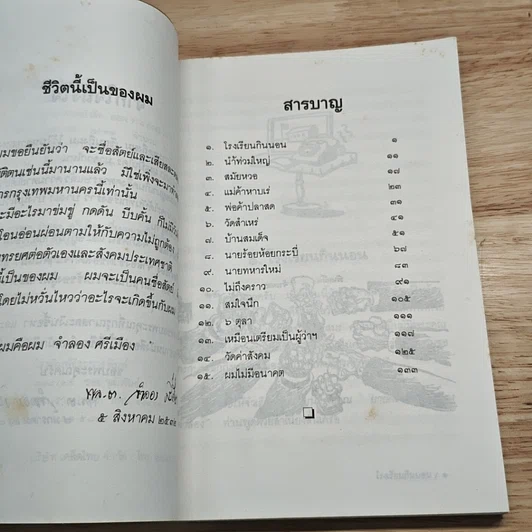 ชีวิตนี้เป็นของผม
ผมขอยืนยันว่า จะซื่อสัตย์และเสียสละ
ติตนเช่นนี้มานานแล้ว มิใช่เพิ่งจะมา
กรุงเทพมหานครนี้เท่านั้น
จะมีอะไรมาข่มขู่ กดดัน บีบคั้น ก็ไม่มี
โอนอ่อนผ่อนตามให้กับความไม่ถูกต้อง
ทรยศต่อตัวเองและสังคมประเทศชาติ
นี้เป็นของผม ผมจะเป็นคนซื่อสัตย์
โดยไม่หวั่นไหวว่าอะไรจะเกิดขึ้นกับผม
ผมคือผม จำลอง ศรีเมือง
พล.ต.
๕ สิงหาคม
สารบาญ
๑. โรงเรียนกินนอน ๑
๒. น้ำท่วมใหญ่ ๑๑
๓. สมัยหวอ ๑๗
๔. แม่ค้าหาบเร่ ๒๓
๕. พ่อค้าปลาสด ๓๑
๖. วัดสำเหร่ ๔๑
๗. บ้านสมเด็จ ๕๑
๘. นายร้อยห้อยกระบี่ ๖๗
๙. นายทหารใหม่ ๘๓
๑๐. ไม่ถึงคราว ๙๑
๑๑. สมใจนึก ๑๐๕
๑๒. ๖ ตุลา ๑๑๑
๑๓. เหมือนเตรียมเป็นผู้ว่าฯ ๑๑๗
๑๔. วัดค่าสังคม ๑๒๕
๑๕. ผมไม่มีอนาคต ๑๓๓